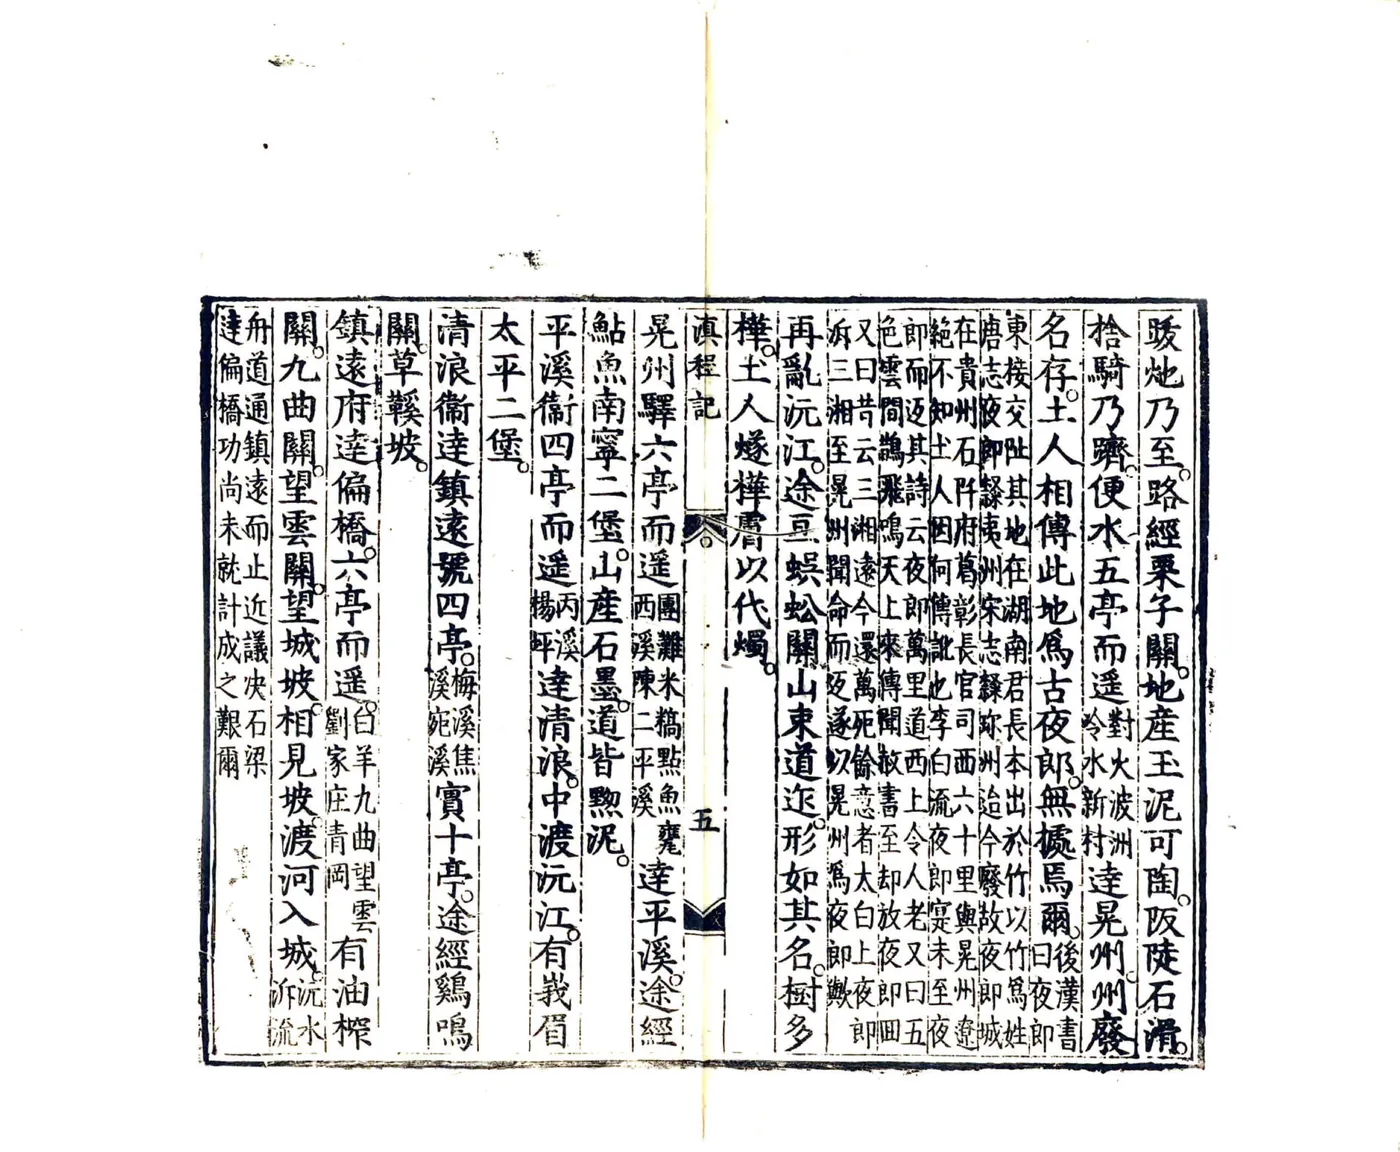 暖灺乃至路經栗子關地產玉泥可陶阪陡石滑
捨騎乃躋便水五亭而遥對火波洲
冷水新村達晃州州廢
名存土人相傳此地爲古夜郎無據焉爾後漢書
曰夜郎
東接交阯其地在湖南君長本出於竹以竹爲姓
唐志夜郎隸夷州宋志隸珍州迨今廢故夜郎城
在貴州石阡府葛彰長官司西六十里與晃州遼
絶不知土人因何傳訛也李白流夜郎寔未至夜
郎而迈其詩云夜郎萬里道西上令人老又曰五
色雲間鵲飛鳴天上來傳聞赦書至却放夜郎回
又曰昔云三湘遠今還萬死餘意者太白上夜郎
泝三湘至晃州聞命而返遂以晃州爲夜郎歟
再亂沅江途亘蜈蚣關山束道迮形如其名樹多
樺土人燧樺膚以代燭
滇程記
五
晃州驛六亭而遥團灘米糯點魚甕
西溪陳二平溪達平溪途經
鮎魚南寧二堡山產石墨道皆黝泥
平溪衞四亭而遥丙溪
楊坪達清浪中渡沅江有峩眉
太平二堡
清浪衞達鎮遠號四亭梅溪焦
溪宛溪實十亭途經鷄鳴
關草鞵坡
鎮遠府達偏橋六亭而遥白羊九曲望雲
劉家庄青岡有油榨
關九曲關望雲關望城坡相見坡渡河入城沅水
泝流
舟道通鎮遠而止近議决石梁
達偏橋功尚未就計成之艱爾